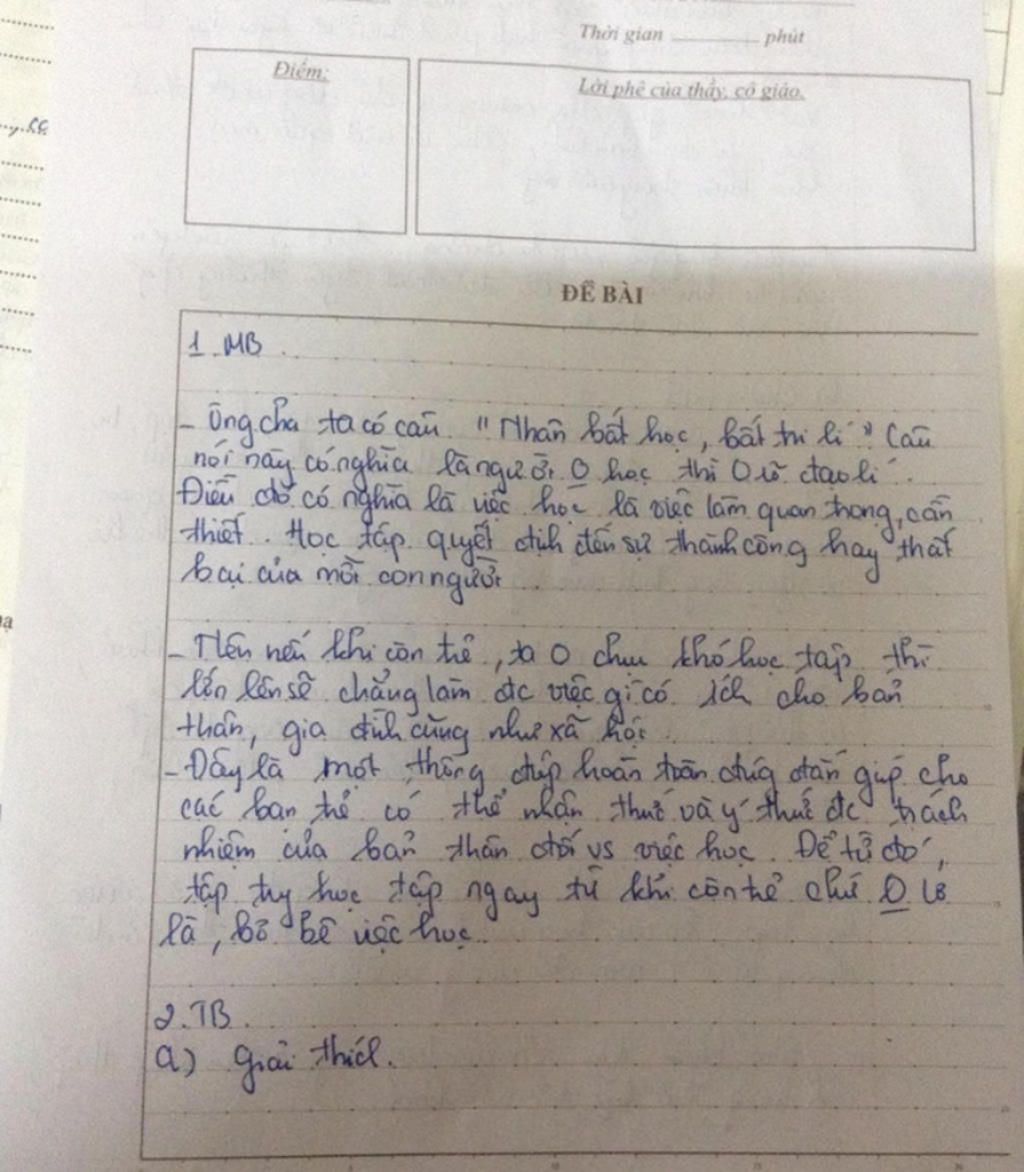 Thời gian ______ phút
Điểm:
Lời phê của thầy, cô giáo.
ĐỀ BÀI
1. MB.
- Ông cha ta có câu "Nhân bất học, bất tri lí". Câu
nói này có nghĩa là người 0 học thì 0 rõ đạo lí.
Điều đó có nghĩa là việc học là việc làm quan trọng, cần
thiết. Học tập quyết định đến sự thành công hay thất
bại của mỗi con người
- Nên nếu khi còn trẻ, ta 0 chịu khó học tập thì
lớn lên sẽ chẳng làm đc việc gì có ích cho bản
thân, gia đình cũng như xã hội.
- Đây là một thông điệp hoàn toàn đúg đắn giúp cho
các bạn trẻ có thể nhận thức và ý thức đc trách
nhiệm của bản thân đối vs việc học. Để từ đó,
tập try học tập ngay từ khi còn trẻ chứ 0 lơ
là, bỏ bê việc học.
2. TB.
a) Giải thích.